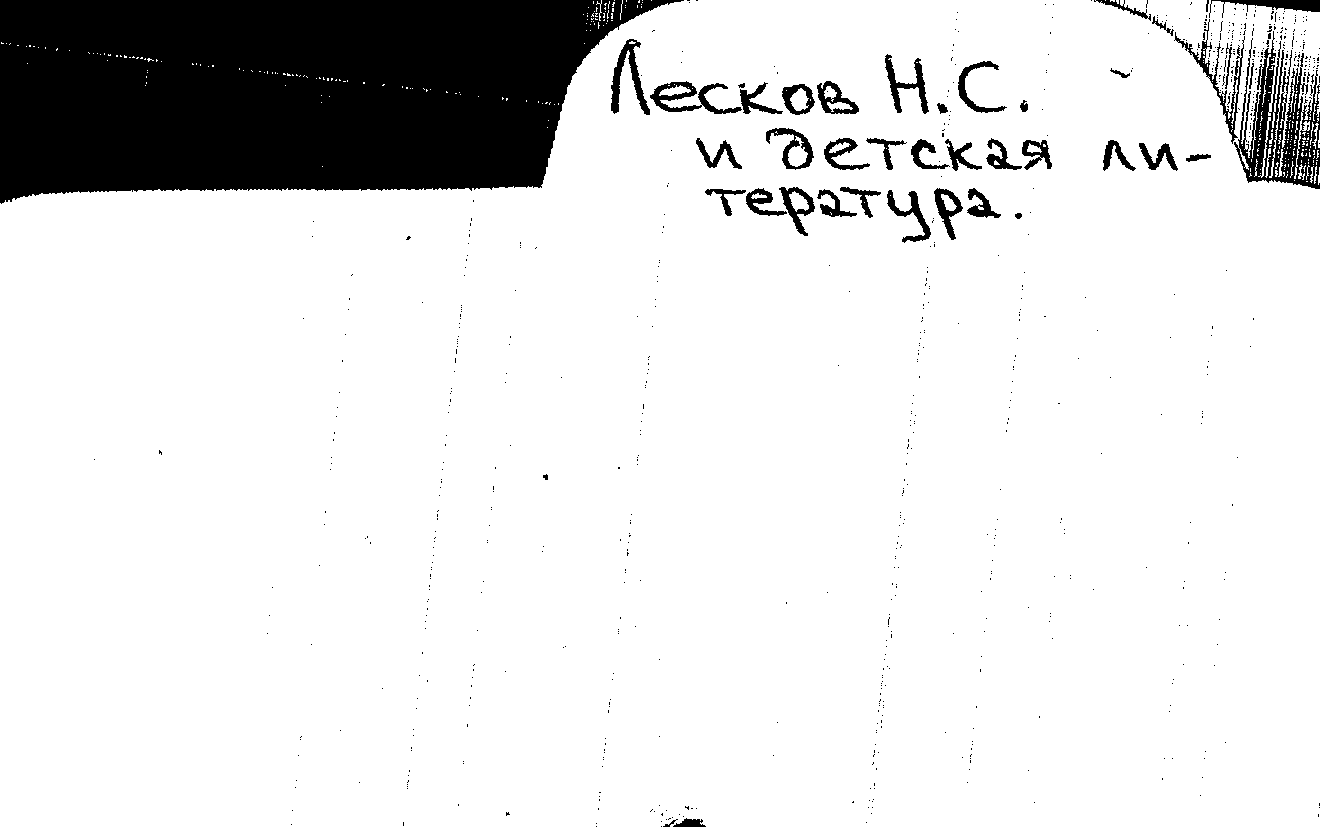 Лесков Н.С.
и детская ли-
тература.